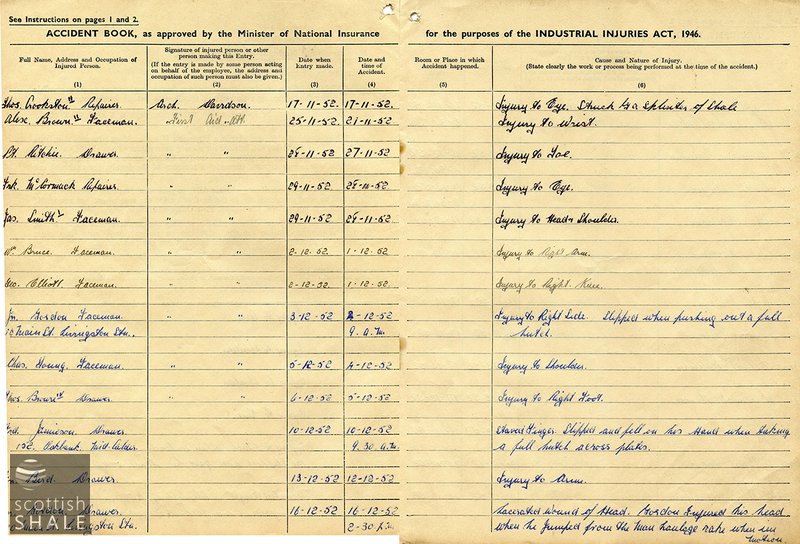 See Instructions on pages 1 and 2.
ACCIDENT BOOK, as approved by the Minister of National Insurance for the purposes of the INDUSTRIAL INJURIES ACT, 1946.
Full Name, Address and Occupation of Injured Person. (1)
Signature of injured person or other person making this Entry. (If the entry is made by some person acting on behalf of the employee, the address and occupation of such person must also be given.) (2)
Date when Entry made. (3)
Date and time of Accident. (4)
Room or Place in which Accident happened. (5)
Cause and Nature of Injury. (State clearly the work or process being performed at the time of the accident.) (6)
Thos. Crookston Repairer. Arch. Davidson. 17-11-52. 17-11-52. Injury to Eye. Struck by a Splinter of Shale
Alex. Brown Faceman. " First Aid Att. 25-11-52. 21-11-52. Injury to Wrist.
Pt. Ritchie. Drawer. " " 28-11-52 27-11-52 Injury to Toe.
Frk. McCormack Repairer. " " 29-11-52 28-11-52 Injury to Eye.
Jas. Smith Faceman. " " 29-11-52 29-11-52 Injury to Head & Shoulder.
Wm Bruce. Faceman. " " 2-12-52. 1-12-52. Injury to Right Arm.
Geo. Elliott. Faceman. " " 2-12-52. 1-12-52. Injury to Right Knee.
Jn. Gordon Faceman. " " 3-12-52 2-12-52 Injury to Right Side. Slipped when pushing out a full
Main St. Livingston Stn. 9. A.M. hutch.
Chas. Young. Faceman. " " 5-12-52 4-12-52 Injury to Shoulder.
Thos. Brown Drawer " " 6-12-52 5-12-52 Injury to Right Foot.
Jamieson. Drawer. 10-12-52 10-12-52 Staved Finger. Slipped and fell on his Hand when taking
152. Oakbank. Mid-Calder. 9.30 A.M. a full hutch across plates.
Bird. Drawer. 13-12-52 12-12-52 Injury to Arm.
Gordon Drawer. 16-12-52 16-12-52 Lacerated wound of Head. Gordon Injured his head
Livingston Stn. 2-30 P.M. when he jumped from the man haulage rake when in
motion.
scottish
SHALE